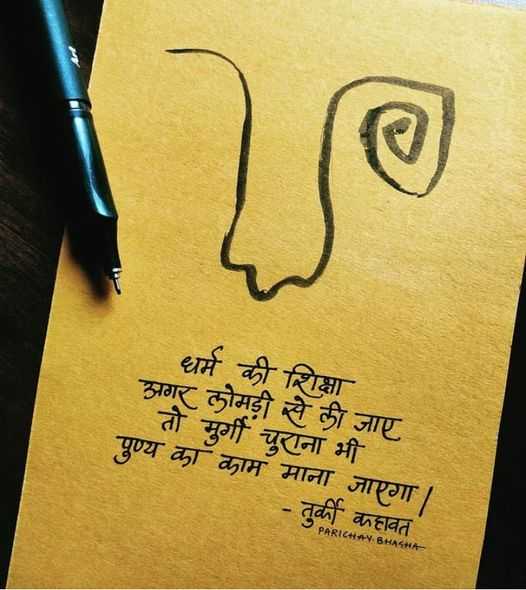 धर्म की शिक्षा
अगर लोमड़ी से ली जाए
तो मुर्गी चुराना भी
पुण्य का काम माना जाएगा।
- तुर्की कहावत
PARICHAY BHASHA